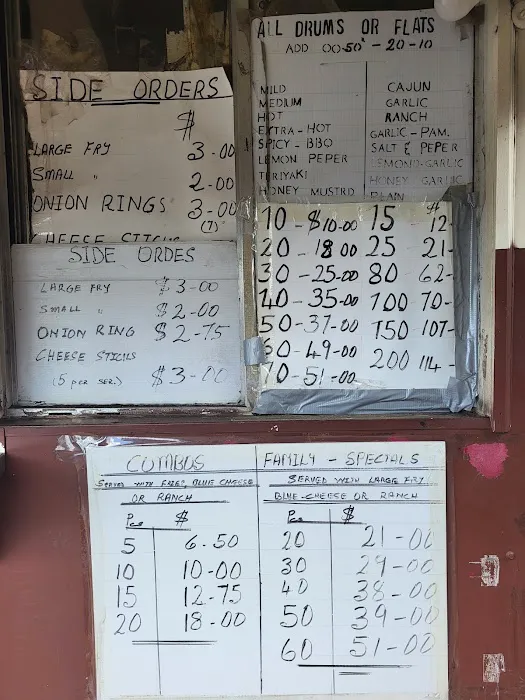 SIDE ORDERS
$
LARGE FRY 3-00
SMALL " 2-00
ONION RINGS 3-00
(7)
CHEESE STICKS
SIDE ORDES
LARGE FRY $3-00
SMALL " $2-00
ONION RING $2-75
CHEESE STICKS
(5 PER SER.) $3-00
ALL DRUMS OR FLATS
ADD 00-50¢ - 20-10
MILD CAJUN
MEDIUM GARLIC
HOT RANCH
EXTRA-HOT GARLIC-PAM.
SPICY-BBQ SALT & PEPER
LEMON PEPER LEMOND-GARLIC
TERIYAKI HONEY GARLIC
HONEY MUSTRD PLAIN
10-$10-00 15 $12-
20-18 00 25 21-
30-25-00 80 62-
40-35-00 100 70-
50-37-00 150 107-
60-49-00 200 114-
70-51-00
COMBOS
SERVED WITH FRIES, BLUE CHEESE
OR RANCH
Pcs $
5 6-50
10 10-00
15 12-75
20 18-00
FAMILY - SPECIALS
SERVED WITH LARGE FRY
BLUE-CHEESE OR RANCH
Pcs $
20 21-00
30 29-00
40 38-00
50 39-00
60 51-00